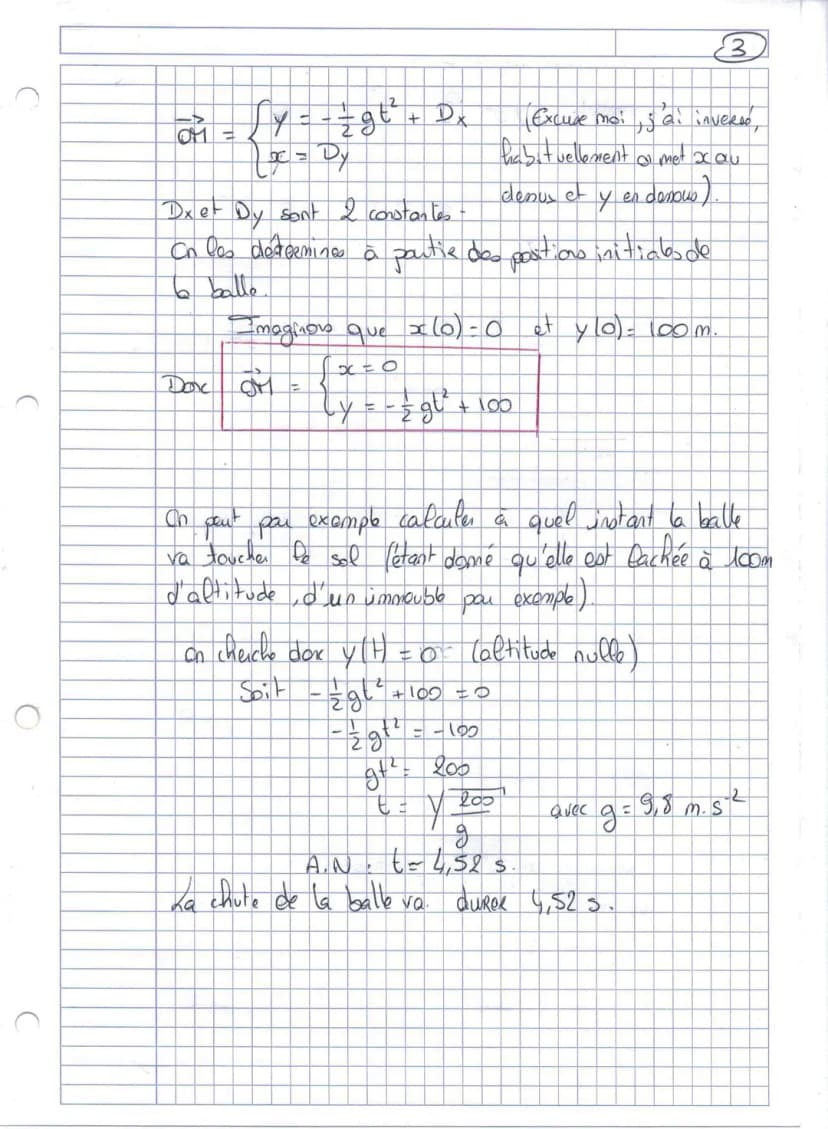 3
OM = { y = -1/2 gt² + Dx (Excuse moi, j'ai inversé,
x = Dy habituellement on met x au
dessus et y en dessous).
Dx et Dy sont 2 constantes.
On les détermine à partie des positions initiales de
la balle.
Imaginons que x(0)=0 et y(0)= 100 m.
Donc OM = { x = 0
y = -1/2 gt² + 100
On peut par exemple calculer à quel instant la balle
va toucher le sol (étant donné qu'elle est lachée à 100m
d'altitude, d'un immeuble par exemple).
On cherche donc y(t) = 0 (altitude nulle)
Soit -1/2 gt² + 100 = 0
-1/2 gt² = -100
gt² = 200
t = √(200/g) avec g = 9,8 m.s⁻²
A.N : t = 4,52 s.
La chute de la balle va durer 4,52 s.